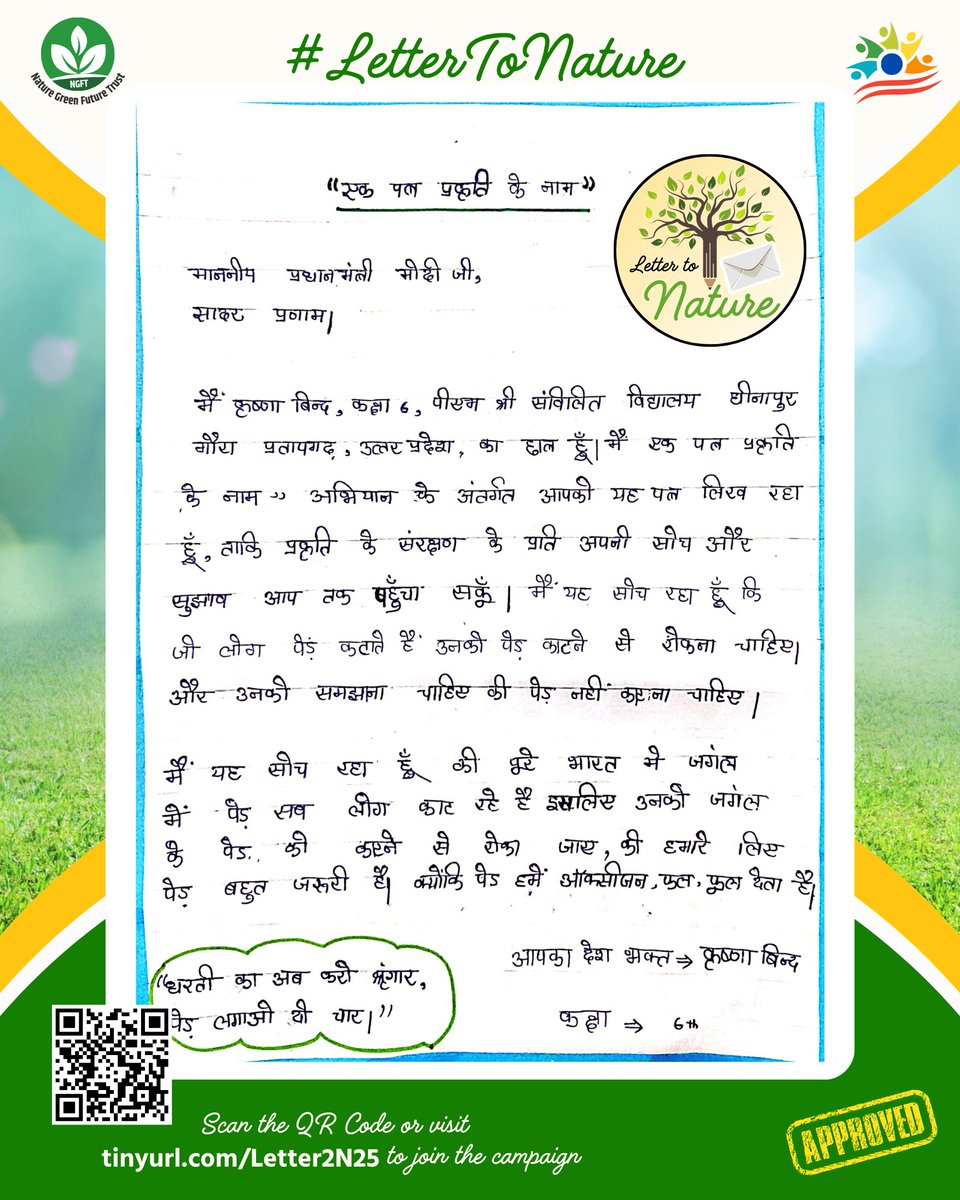 #LetterToNature
NGFT
Nature Green Future Trust
"एक पत्र प्रकृति के नाम"
Letter to
Nature
माननीय प्रधानमंत्री मोदी जी,
सादर प्रणाम।
मैं कृष्णा बिन्द, कक्षा 6, पीएम श्री संविलित विद्यालय धीनापुर
गौरा प्रतापगढ़, उत्तर प्रदेश, का छात्र हूँ। मैं एक पत्र प्रकृति
के नाम" अभियान के अंतर्गत आपको यह पत्र लिख रहा
हूँ, ताकि प्रकृति के संरक्षण के प्रति अपनी सोच और
सुझाव आप तक पहुँचा सकूँ। मैं यह सोच रहा हूँ कि
जो लोग पेड़ कटाते हैं उनको पेड़ काटने से रोकना चाहिए।
और उनको समझाना चाहिए की पेड़ नहीं काटना चाहिए।
मैं यह सोच रहा हूँ की पूरे भारत मे जगंल
में पेड़ सब लोग काट रहे है इसलिए उनको जगंल
के पेड़ को काटने से रोका जाए, की हमारे लिए
पेड़ बहुत जरूरी है। क्योंकि पेड़ हमें ऑक्सीजन, फल, फूल देता है।
आपका देश भक्त ⇒ कृष्णा बिन्द
कक्षा ⇒ 6th
"धरती का अब करो श्रृंगार,
पेड़ लगाओ दो चार।"
Scan the QR Code or visit
tinyurl.com/Letter2N25 to join the campaign
APPROVED